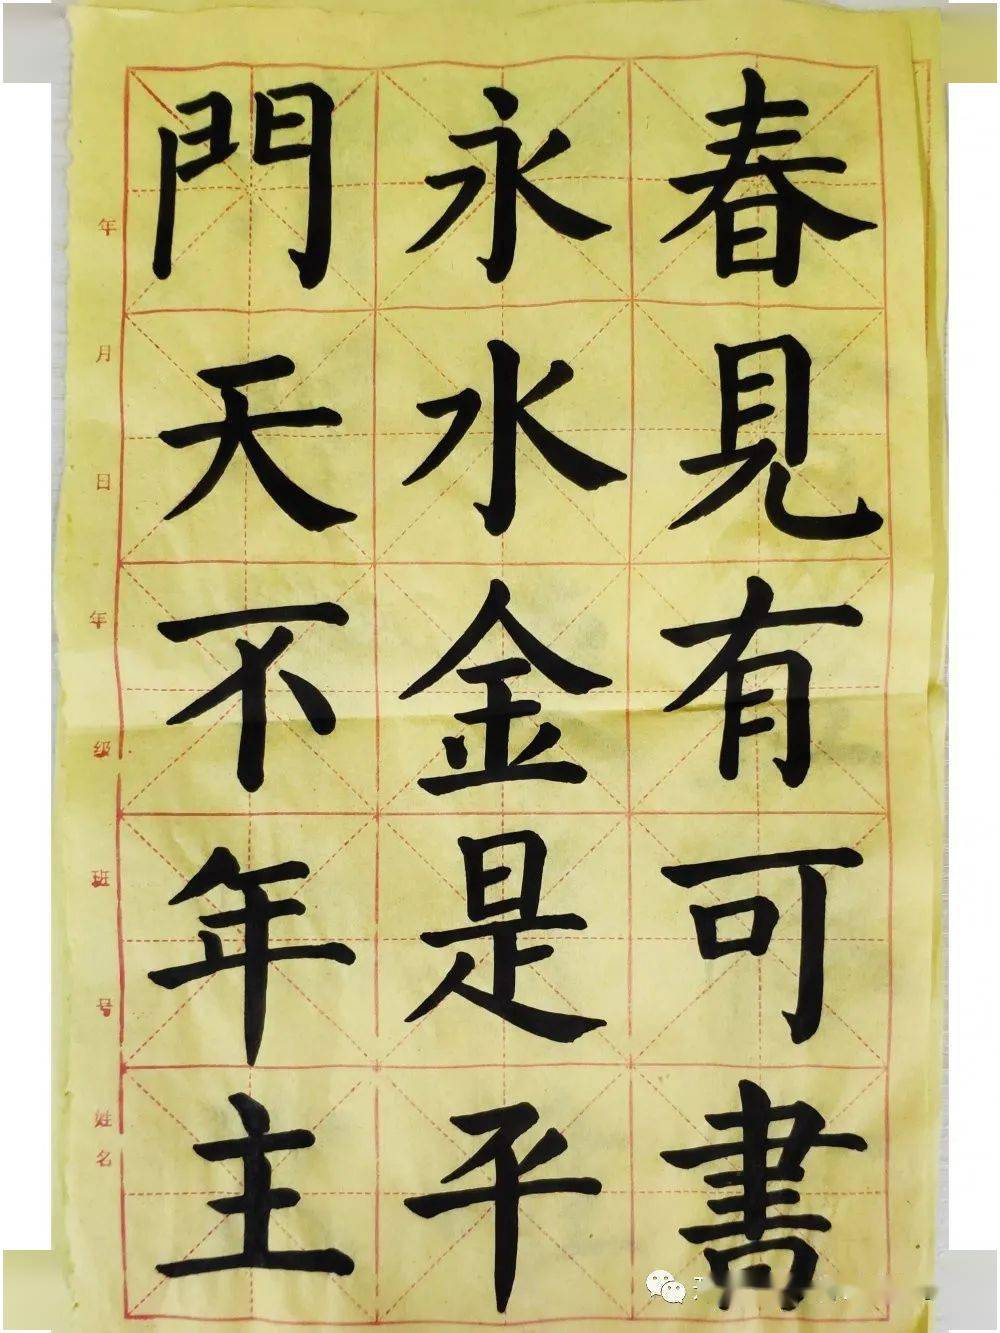 春見有可書
永水金是平
門天不年主
年月日
年级班号
姓名